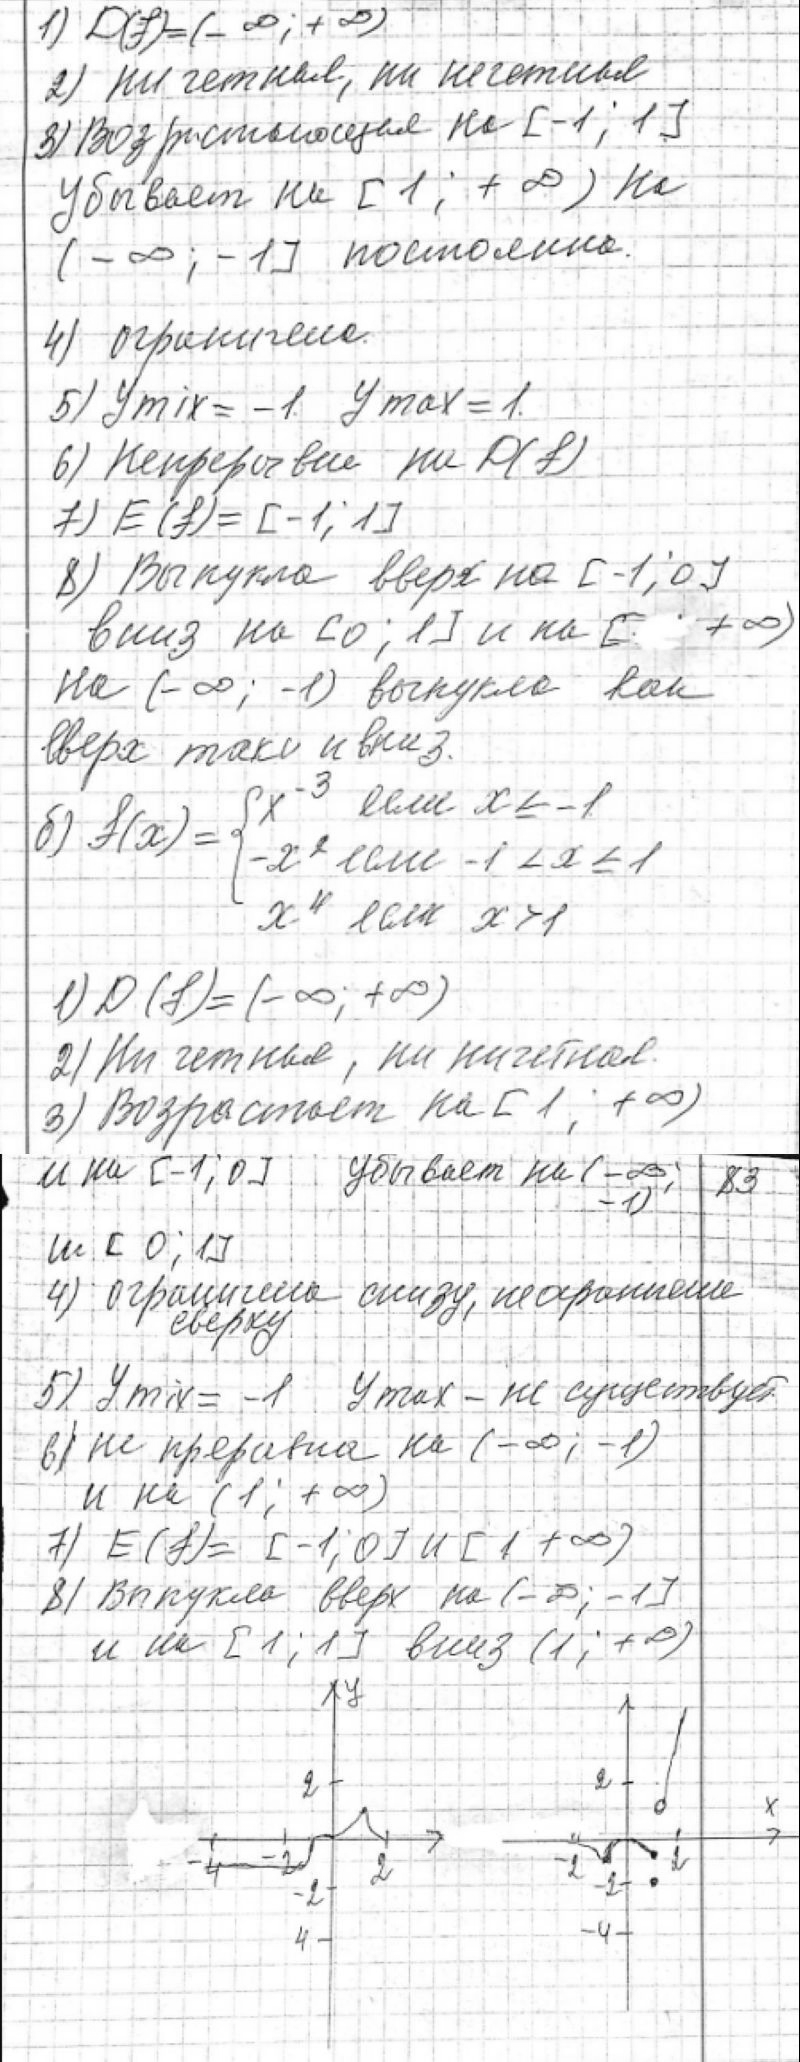 1) D(f)=(-∞; +∞)
2) Ни четная, ни нечетная
3) Возрастающая на [-1; 1]
Убывает на [1; +∞) на
(-∞; -1] постоянна.
4) ограничена.
5) Ymix= -1 Ymax= 1.
6) Непрерывна на D(f)
7) E(f)= [-1; 1]
8) Выпукла вверх на [-1; 0]
вниз на [0; 1] и на [ +∞)
на (-∞; -1) выпукла как
вверх так и вниз.
б) f(x)= { x⁻³ если x ≤ -1
-x² если -1 < x ≤ 1
x⁴ если x > 1
1) D(f)=(-∞; +∞)
2) Ни четная, ни ничетная.
3) Возрастает на [1; +∞)
и на [-1; 0] Убывает на (-∞; -1) 83
[0; 1]
4) ограничена снизу, не ограничена
сверху
5) Ymix= -1 Ymax - не существует.
6) не преравна на (-∞; -1)
и на (1; +∞)
7) E(f)= [-1; 0] и [1 +∞)
8) Выпукла вверх на (-∞; -1]
и на [1; 1] вниз (1; +∞)
y
2 2
x
-4 -2 2 -2 2
-2 -2
4 -4